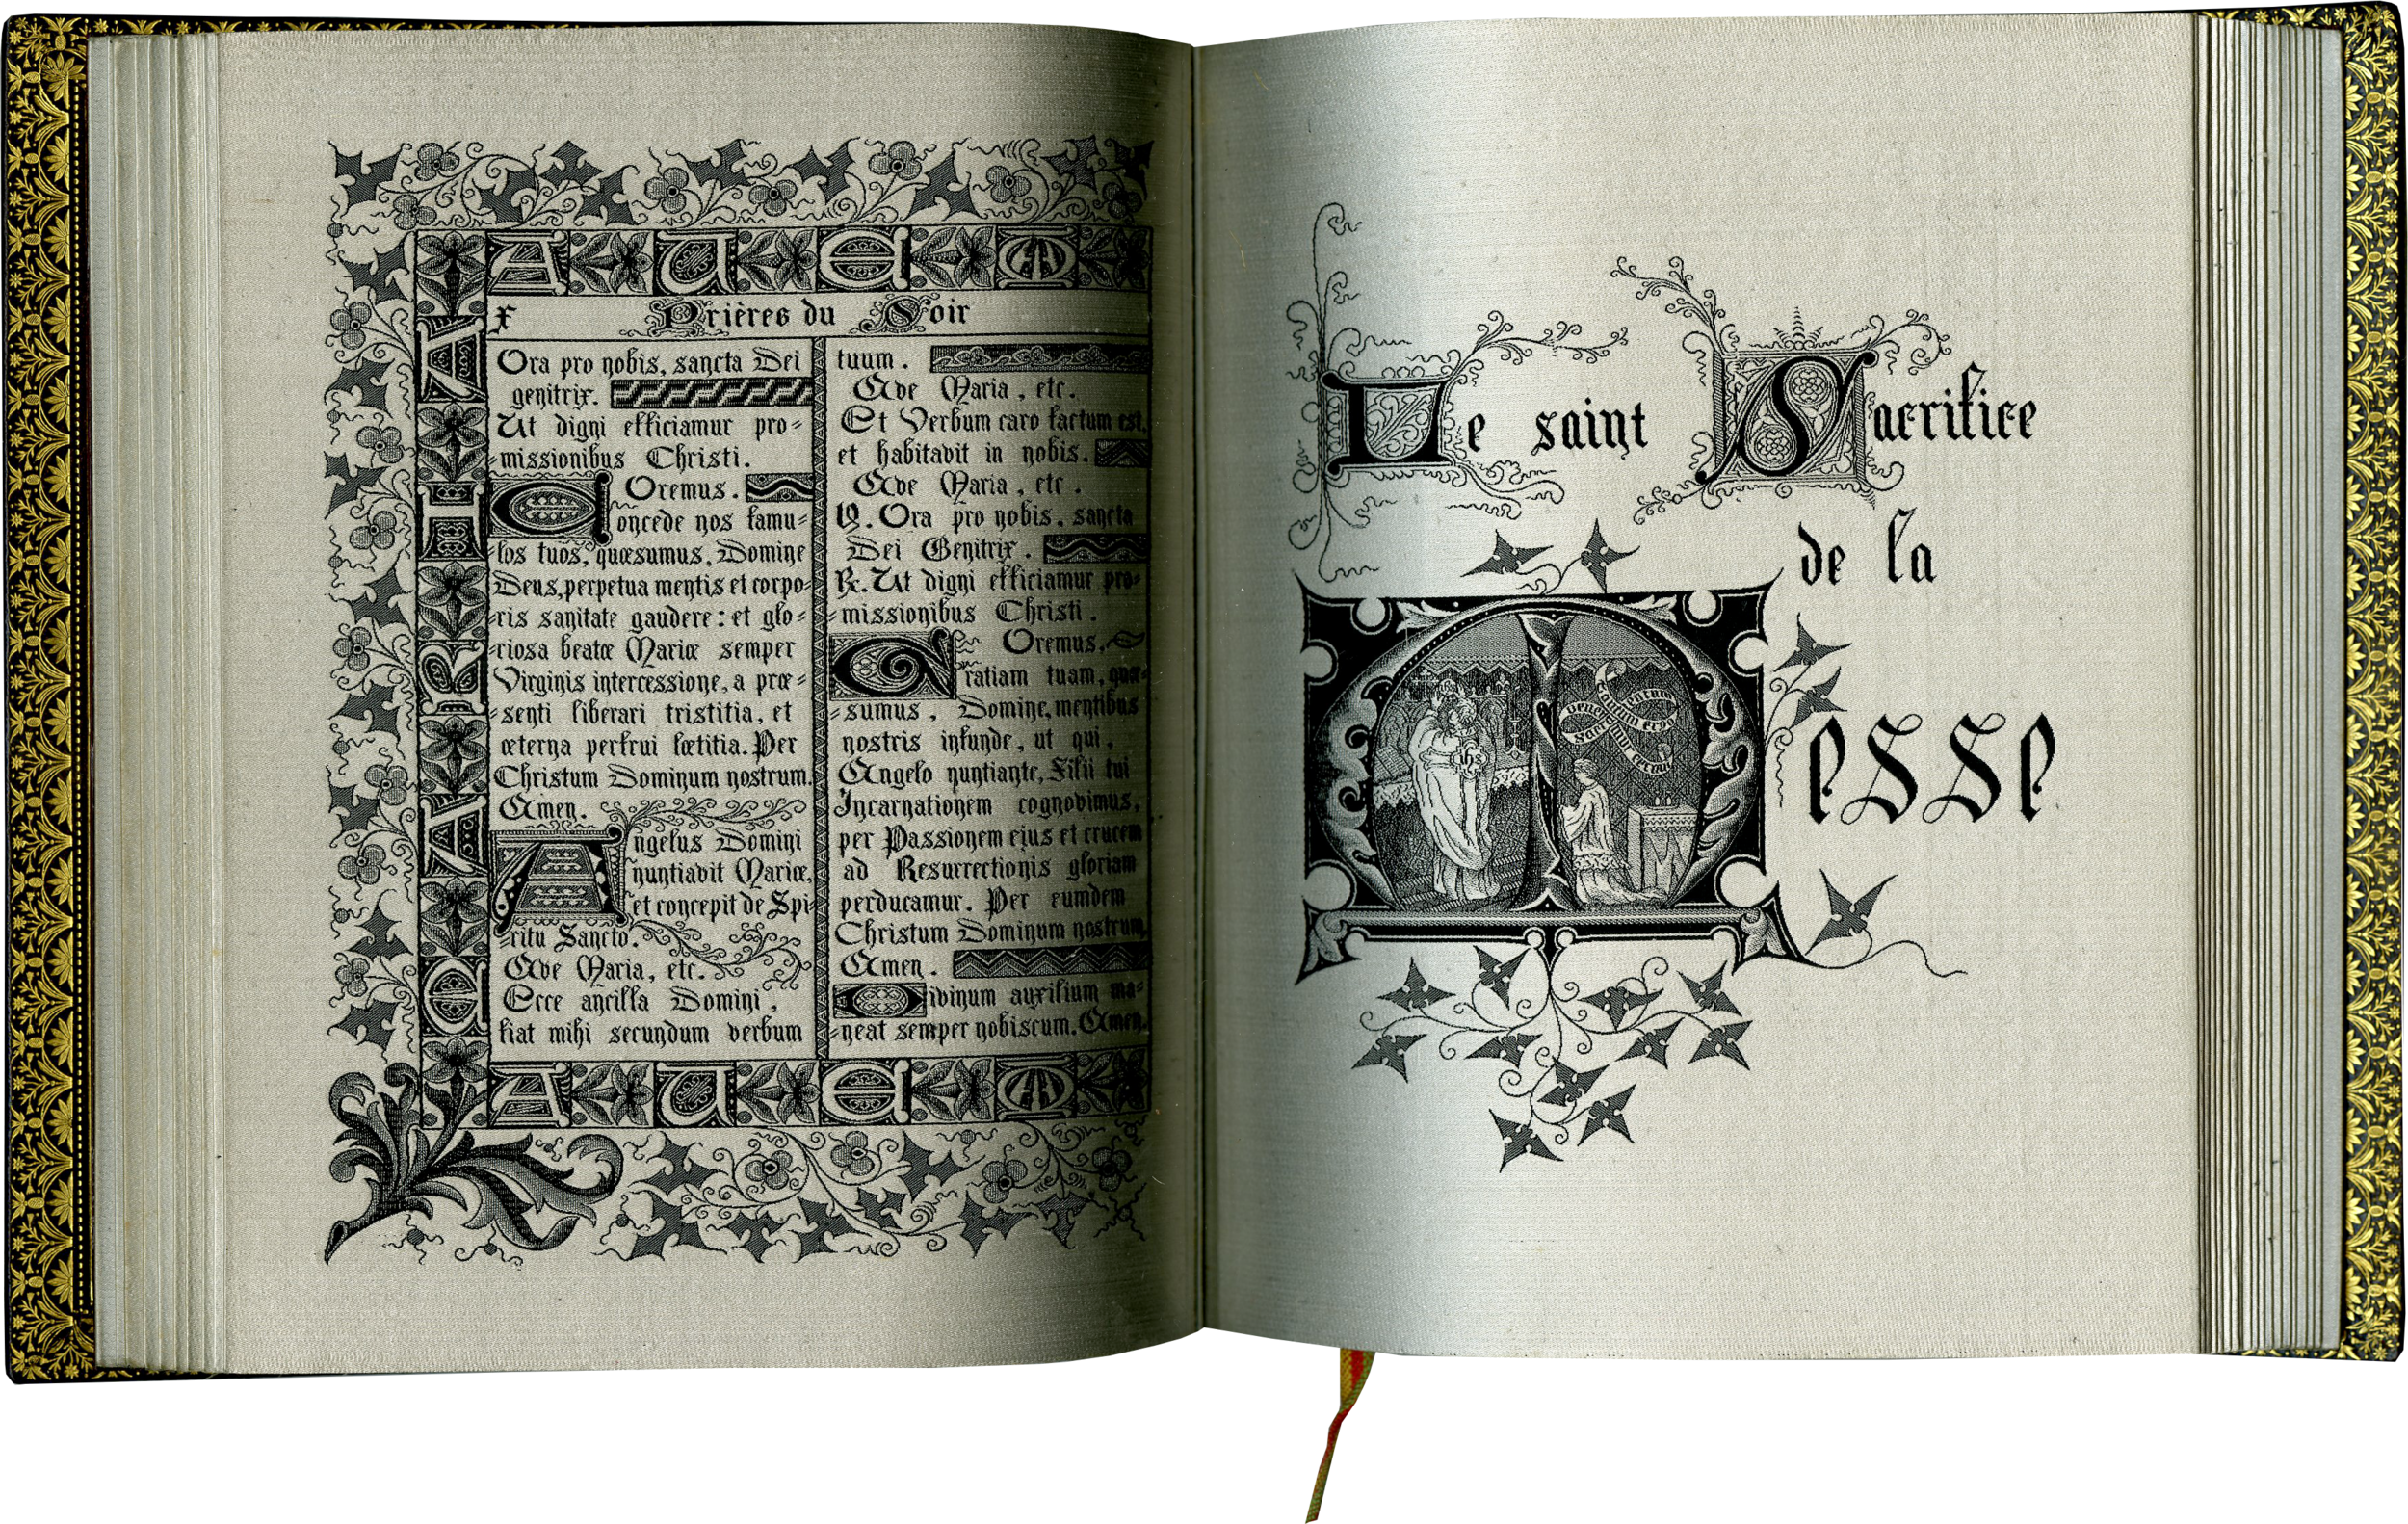 AVE M
MARIA
x Prières du Soir
Ora pro nobis, sancta Dei
genitrix.
Ut digni efficiamur pro=
=missionibus Christi.
Oremus.
Concede nos famu=
=los tuos, quœsumus, Domine
Deus, perpetua mentis et corpo=
=ris sanitate gaudere: et glo=
=riosa beatœ Mariœ semper
Virginis intercessione, a prœ=
=senti liberari tristitia, et
œterna perfrui lœtitia. Per
Christum Dominum nostrum.
Amen.
Angelus Domini
nuntiavit Mariœ,
et concepit de Spi=
=ritu Sancto.
Ave Maria, etc.
Ecce ancilla Domini,
fiat mihi secundum verbum
tuum.
Ave Maria, etc.
Et Verbum caro factum est,
et habitavit in nobis.
Ave Maria, etc.
V. Ora pro nobis, sancta
Dei Genitrix.
R. Ut digni efficiamur pro=
=missionibus Christi.
Oremus.
Gratiam tuam, quœ=
=sumus, Domine, mentibus
nostris infunde, ut qui,
Angelo nuntiante, Filii tui
Incarnationem cognovimus,
per Passionem ejus et crucem
ad Resurrectionis gloriam
perducamur. Per eumdem
Christum Dominum nostrum.
Amen.
Divinum auxilium ma=
=neat semper nobiscum. Amen.
AVE M
Le saint Sacrifice
de la
Messe
Tantum ergo
Sacramentum
Veneremur cernui
ihs